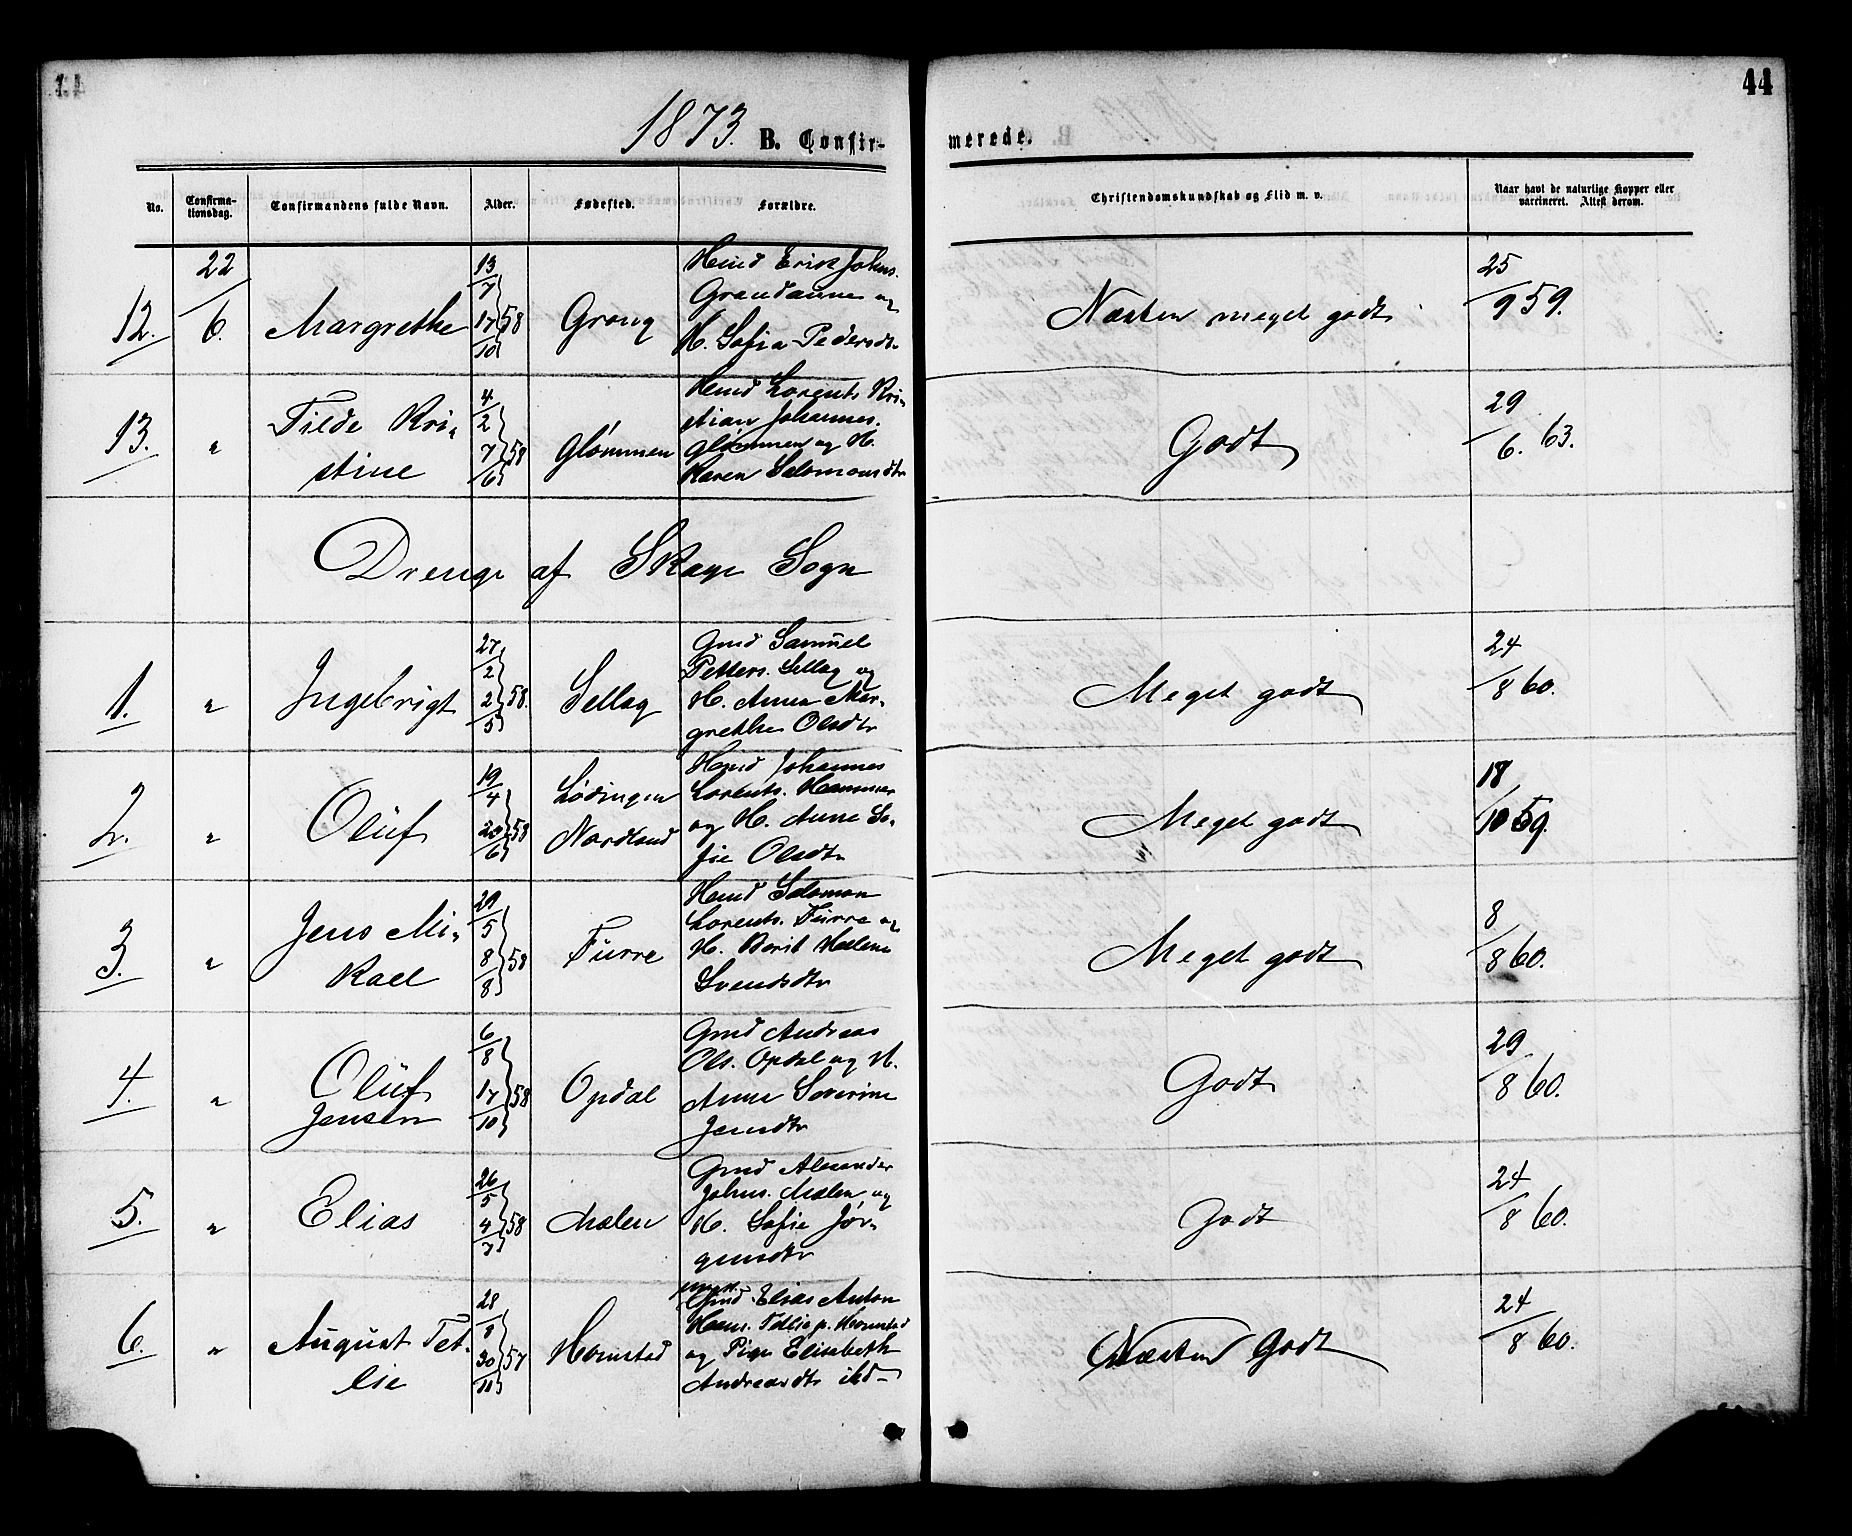 44
1873. B. Confirmerede.
No. Confirmationsdag. Confirmandens fulde Navn. Alder. Fødested. Forældre. Christendomskundskab og Flid m. v. Naar havt de naturlige Kopper eller vaccineret. Attest derom.
12. 22/6. Margrethe 13/7 17/10 58 Grong
Hmd Erik Johns.
Grandaune og
H. Sofia Pedersdtr
Næsten meget godt 25/9 59.
13. " Tilde Kristine 4/2 7/6 58 Glømmen
Hmd Lorents Kristian Johannes.
Glømmen og H.
Karen Salomonsdtr
Godt 29/6. 63.
Drenge af Skage Sogn
1. " Ingebrigt 27/2 2/5 58. Sellæg
Gmd Samuel
Petters. Sellæg og
H. Anna Margrethe Olsdtr
Meget godt 24/8 60.
2. " Oluf 19/4 24/6 58 Lødingen Nordland
Hmd Johannes
Lorents. Hammer
og H. Anne Sofie Olsdtr
Meget godt 18/10 59.
3. " Jens Mikael 29/5 8/8 58 Furre
Hmd Salomon
Lorents. Furre og
H. Berit Helena
Svendsdtr
Meget godt 8/8 60.
4. " Oluf Jensen 6/8 17/10 58 Opdal
Gmd Andreas
Ols. Opdal og H.
Anna Severine
Jensdtr
Godt 29/8 60.
5. " Elias 26/5 4/7 58 Mælen
Gmd Alexander
Johns. Mælen og
H. Sofie Jørgensdtr
Godt 24/8 60.
6. " August Tetlie 28/9 30/11 57 Homstad
Gmd Elias Anton
Hans. Tetlie p. Homstad
og Pige Elisabeth
Andreasdtr ibd
Næsten Godt 24/8 60.